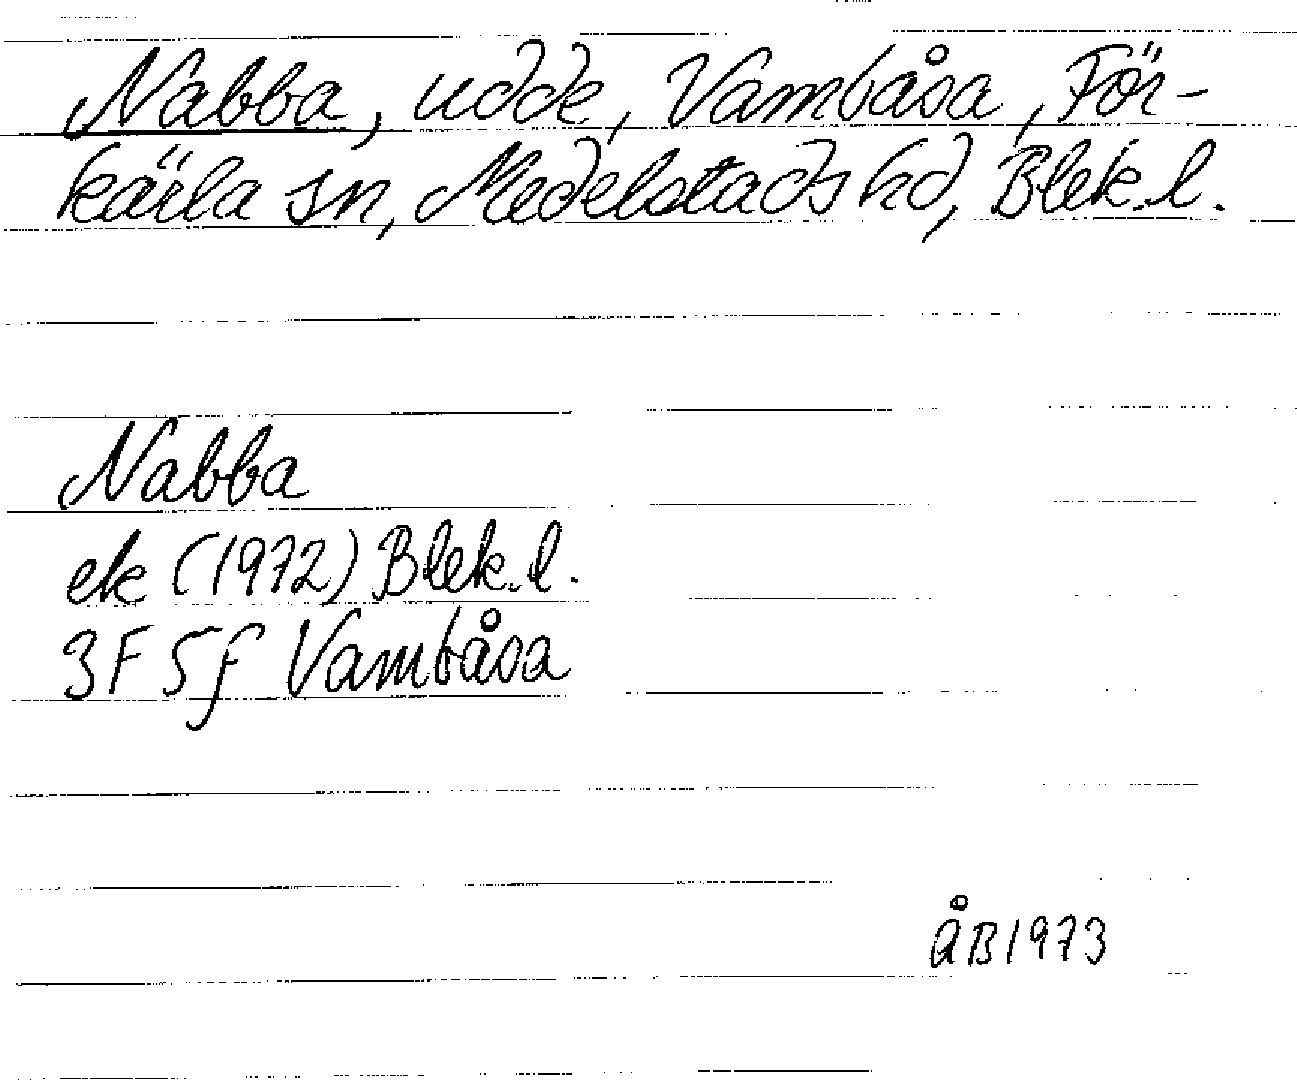 Nabba, udde, Vambåsa, För-
kärla sn, Medelstads hd, Blek.l.
Nabba
ek (1972) Blek.l.
3F 5f Vambåsa
ÅB 1973